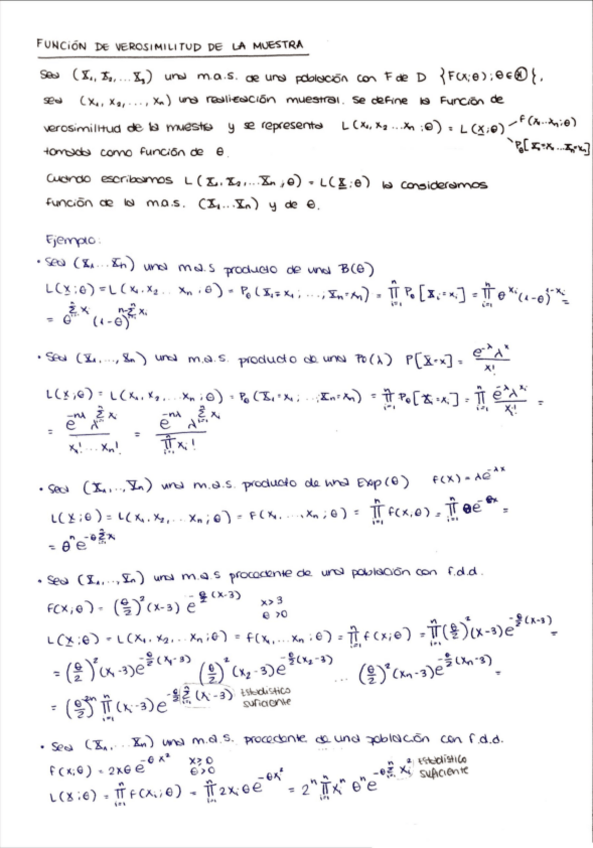 FUNCIÓN DE VEROSIMILITUD DE LA MUESTRA
Sea (X₁, X₂, ... Xₙ) una m.a.s. de una población con F de D {F(x;θ); θ∈Θ},
sea (x₁, x₂, ..., xₙ) una realización muestral. Se define la Función de
verosimilitud de la muestra y se representa L(x₁, x₂ ... xₙ; θ) = L(x; θ) f(x₁...xₙ; θ)
Pθ[X₁=x₁ ... Xₙ=xₙ]
tomada como función de θ.
Cuando escribamos L(X₁, X₂, ... Xₙ; θ) = L(X; θ) la consideramos
función de la m.a.s. (X₁...Xₙ) y de θ.
Ejemplo:
• Sea (X₁ ... Xₙ) una m.a.s producto de una B(θ)
L(x; θ) = L(x₁, x₂ ... xₙ; θ) = Pθ(X₁=x₁; ..., Xₙ=xₙ) = ∏ᵢ₌₁ⁿ Pθ[Xᵢ=xᵢ] = ∏ᵢ₌₁ⁿ θ^xᵢ (1-θ)^(1-xᵢ) =
= θ^(∑ᵢ₌₁ⁿ xᵢ) (1-θ)^(n-∑ᵢ₌₁ⁿ xᵢ)
• Sea (X₁, ..., Xₙ) una m.a.s. producto de una Po(λ) P[X=x] = e^(-λ) λ^x / x!
L(x; θ) = L(x₁, x₂, ... xₙ; θ) = Pθ(X₁=x₁; ...; Xₙ=xₙ) = ∏ᵢ₌₁ⁿ Pθ[Xᵢ=xᵢ] = ∏ᵢ₌₁ⁿ e^(-λ) λ^xᵢ / xᵢ! =
= e^(-nλ) λ^(∑ᵢ₌₁ⁿ xᵢ) / x₁! ... xₙ! = e^(-nλ) λ^(∑ᵢ₌₁ⁿ xᵢ) / ∏ᵢ₌₁ⁿ xᵢ!
• Sea (X₁, ..., Xₙ) una m.a.s. producto de una Exp(θ) f(x) = λe^(-λx)
L(x; θ) = L(x₁, x₂, ... xₙ; θ) = f(x₁, ..., xₙ; θ) = ∏ᵢ₌₁ⁿ f(x, θ) = ∏ᵢ₌₁ⁿ θe^(-θx) =
= θⁿ e^(-θ∑ᵢ₌₁ⁿ xᵢ)
• Sea (X₁, ..., Xₙ) una m.a.s procedente de una población con f.d.d.
f(x; θ) = (θ/2)² (x-3) e^(-θ/2 (x-3)) x>3
θ>0
L(x; θ) = L(x₁, x₂, ... xₙ; θ) = f(x₁, ... xₙ; θ) = ∏ᵢ₌₁ⁿ f(x; θ) = ∏ᵢ₌₁ⁿ (θ/2)² (x-3) e^(-θ/2 (x-3)) =
= (θ/2)² (x₁-3) e^(-θ/2 (x₁-3)) (θ/2)² (x₂-3) e^(-θ/2 (x₂-3)) ... (θ/2)² (xₙ-3) e^(-θ/2 (xₙ-3)) =
= (θ/2)^2n ∏ᵢ₌₁ⁿ (xᵢ-3) e^(-θ/2 ∑ᵢ₌₁ⁿ (xᵢ-3)) Estadístico
suficiente
• Sea (X₁, ... Xₙ) una m.a.s. procedente de una población con f.d.d.
f(x; θ) = 2xθ e^(-θ x²) x≥0
θ>0
L(x; θ) = ∏ᵢ₌₁ⁿ f(xᵢ; θ) = ∏ᵢ₌₁ⁿ 2xᵢ θ e^(-θx²) = 2ⁿ ∏ᵢ₌₁ⁿ xᵢⁿ θⁿ e^(-θ∑ᵢ₌₁ⁿ xᵢ²) Estadístico
suficiente